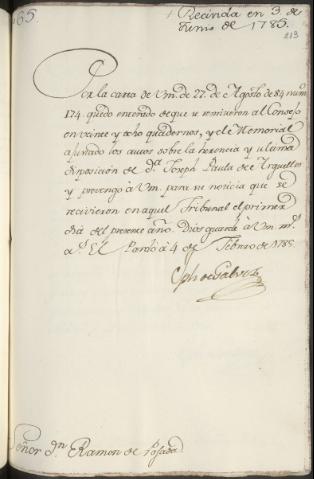 65
Recivida en 3. de
Junio de 1785.
213
Por la carta de Vm. de 27. de Agosto de 84 num.
174. quedo enterado de que se remitieron al Consejo
en veinte y ocho quadernos, y el Memorial
ajustado los autos sobre la herencia y ultima
disposicion de dn. Joseph Paula de Arguellos
y prevengo à Vm. para su noticia que se
recivieron en aquel Tribunal el primer
dia del presente año. Dios guarde à Vm. ms.
as. El Pardo à 4 de Febrero de 1785.
Jph de Galvez
Señor dn. Ramon de Posada